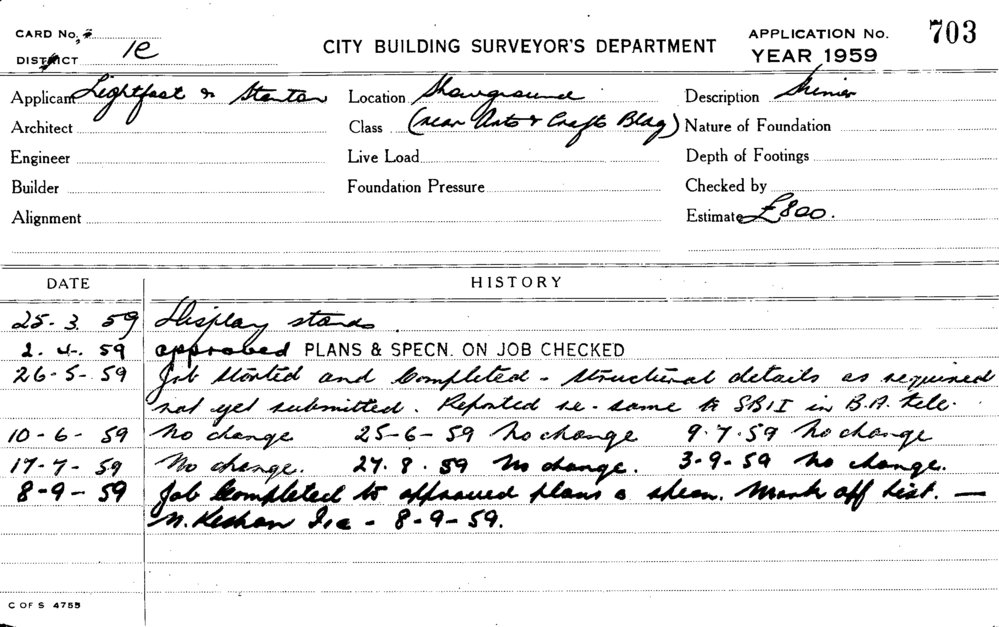 CARD No.
DISTRICT 1e
CITY BUILDING SURVEYOR'S DEPARTMENT
APPLICATION No. 703
YEAR 1959
Applicant Lightfoot & Stanton Location Showground Description Minor
Architect Class (near Arts & Crafts Bldg) Nature of Foundation
Engineer Live Load Depth of Footings
Builder Foundation Pressure Checked by
Alignment Estimate £800.
DATE HISTORY
25-3 59 Display stands
2. 4. 59 approved PLANS & SPECN. ON JOB CHECKED
26-5-59 Job started and Completed - structural details as required
not yet submitted. Reported re-same to SBI in B.A. tele.
10-6-59 No change 25-6-59 No change 9.7.59 No change
17-7-59 No change. 27.8.59 No change. 3-9-59 No change.
8-9-59 Job Completed to approved plans & specn. Mark off List. —
8-9-59.
C OF S 4755